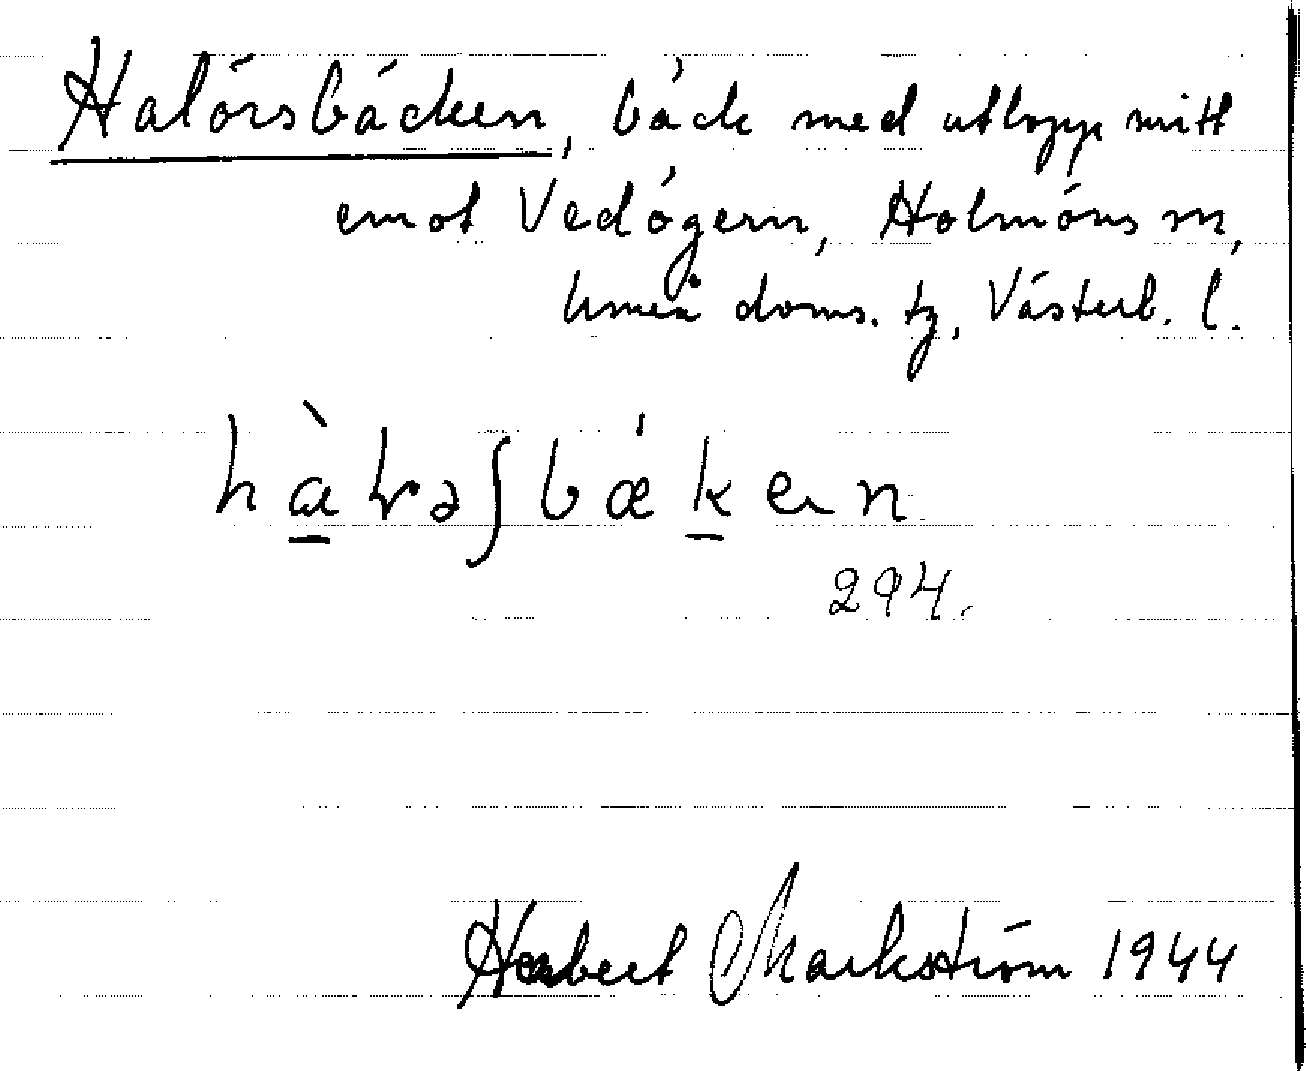 Halörsbäcken, bäck med utlopp mitt
emot Vedögern, Holmöns sn,
Umeå doms. tg, Västerb. l.
294.
Herbert Markström 1944